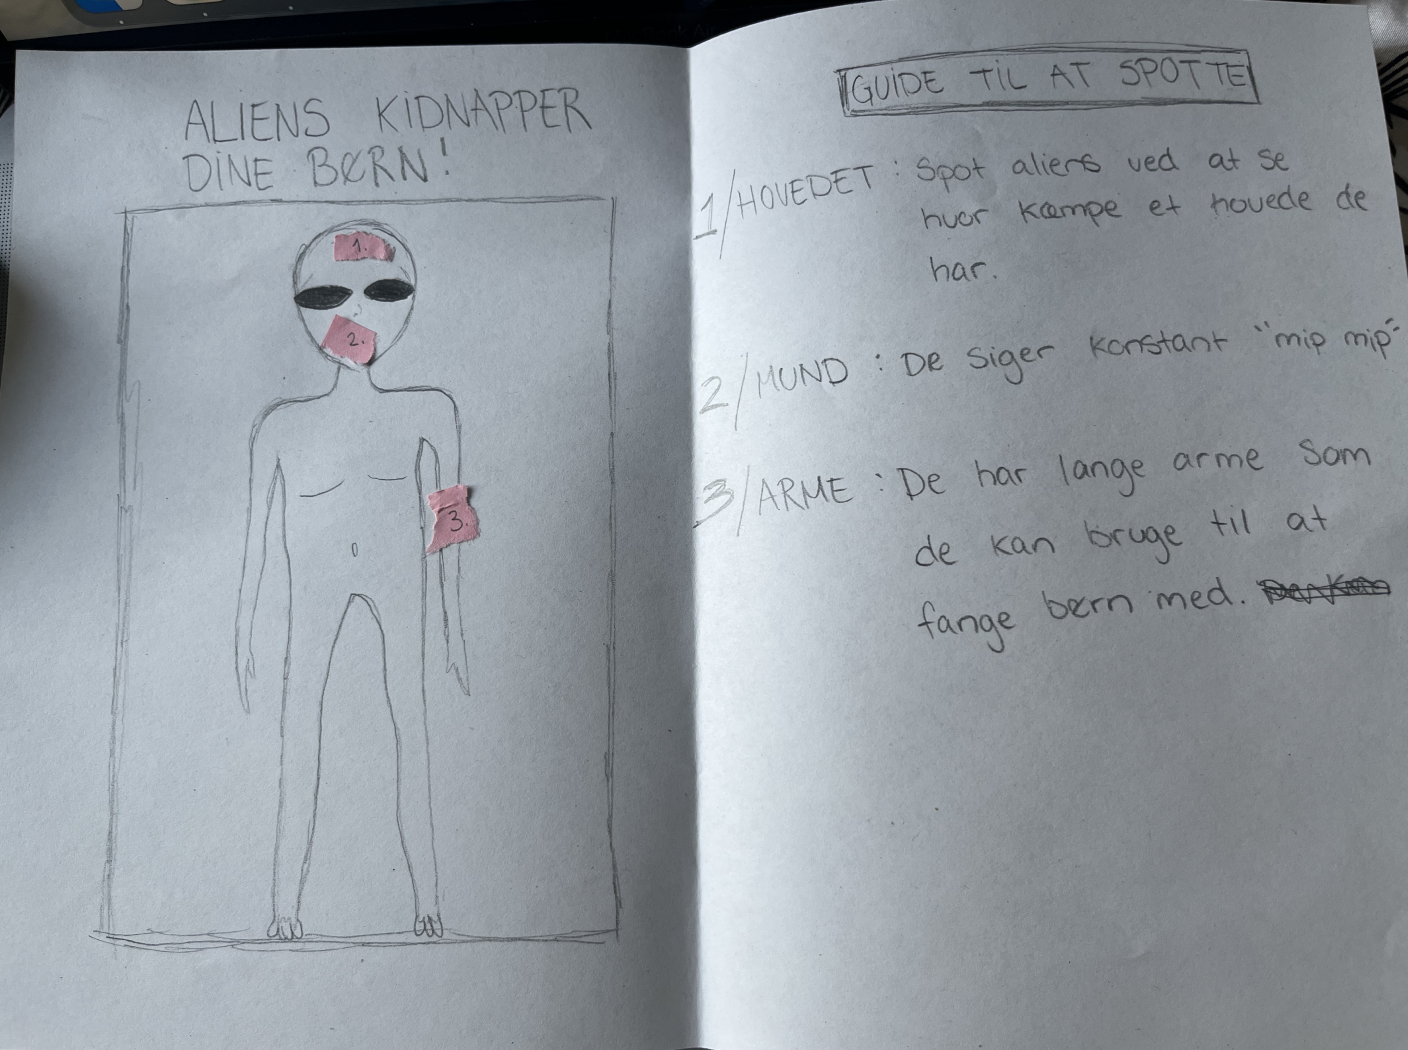 ALIENS KIDNAPPER
DINE BØRN!
1.
2.
3.
GUIDE TIL AT SPOTTE
1/HOVEDET : Spot aliens ved at se
hvor kæmpe et hovede de
har.
2/MUND : De siger konstant "mip mip"
3/ARME : De har lange arme som
de kan bruge til at
fange børn med.